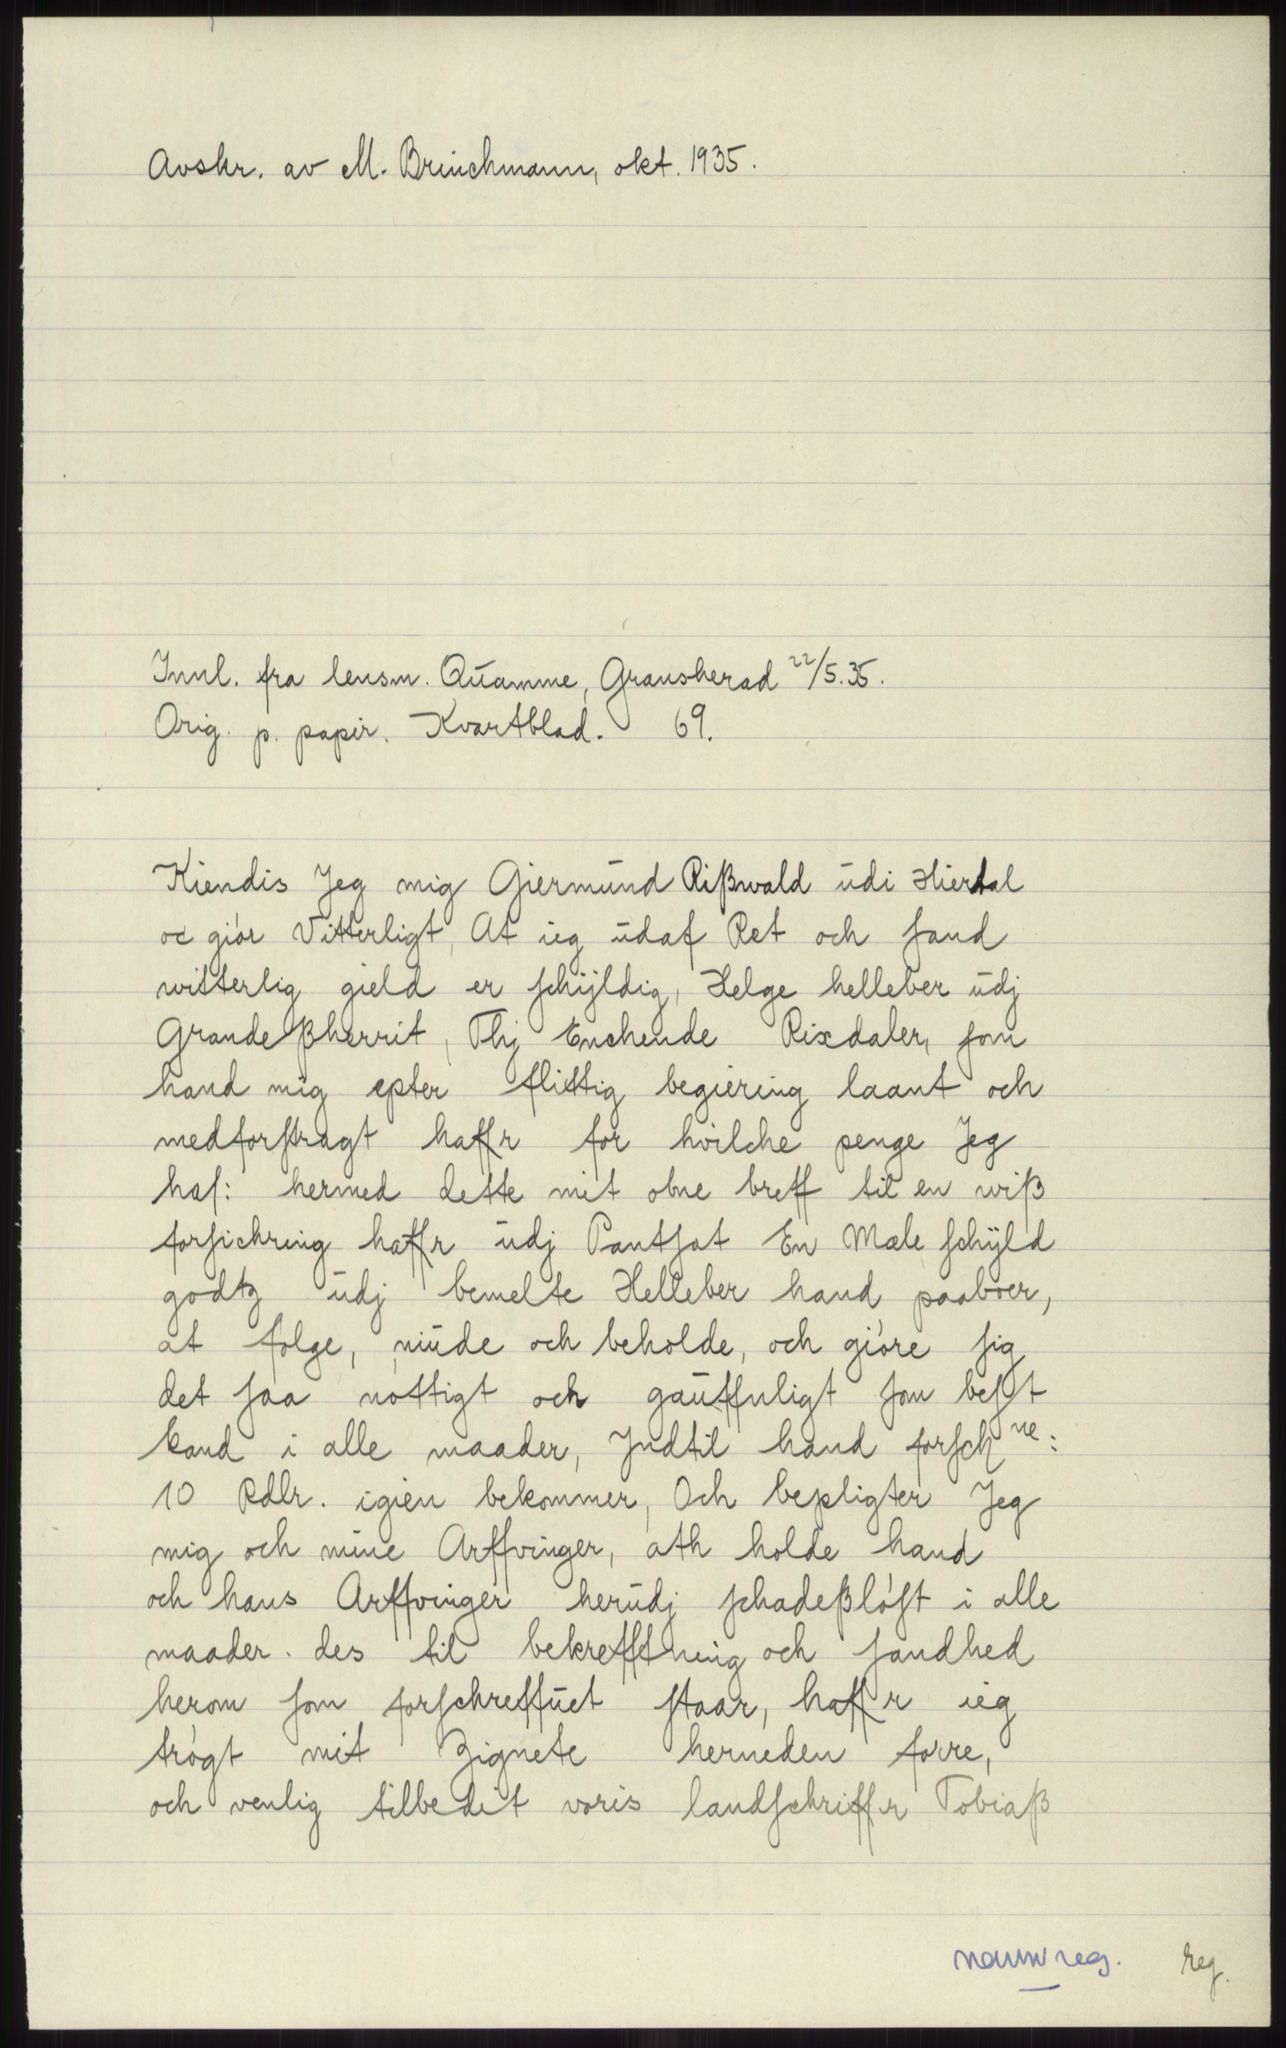 Avskr. av M. Brinchmann, okt. 1935.
Innl. fra lensm. Quamme, Gransherad 22/5.35.
Orig. p. papir. Kvartblad. 69.
Kiendis Jeg mig Giermund Rißwald udi Hierdal
oc giör Vitterligt, At ieg udaf Ret och sand
witterlig gield er schyldig, Helge helleber udj
Grandeßherrit, Thj Enchende Rixdaler, som
hand mig epter flittig begiering laant och
medforstragt haffr for hvilche penge Jeg
haf: hermed dette mit obne breff til en wiß
forsichring haffr udj Pantsat En Mæle schyld
godtz udj bemelte Helleber hand paaboer,
at følge, niude och beholde, och giöre sig
det saa nøttigt och gauffnligt som best
kand i alle maader, Indtil hand forsch ne:
10 Rdlr. igien bekommer, Och bepligter Jeg
mig och mine Arffvinger, ath holde hand
och hans Arffvinger herudj schadeßlöst i alle
maader. des til bekrefftning och sandhed
herom som forschreffuet staar, haffr ieg
trögt mit Zignete herneden forre,
och venlig tilbedit voris landschriffr Tobiaß
navnreg. reg.